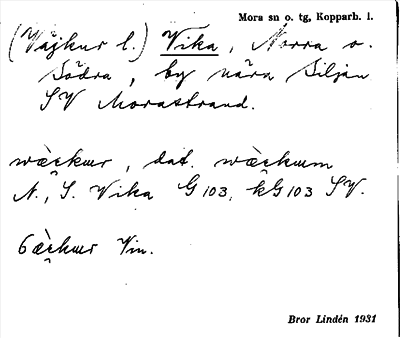 Mora sn o. tg, Kopparb. l.
(Väjkur l.) Vika, Norra o.
Södra, by nära Siljan
SV Morastrand.
wὲc̯kur, dat. wὲc̯kum
N., S. Vika G 103, kG 103 SV.
6ὲc̯kur Vin.
Bror Lindén 1931